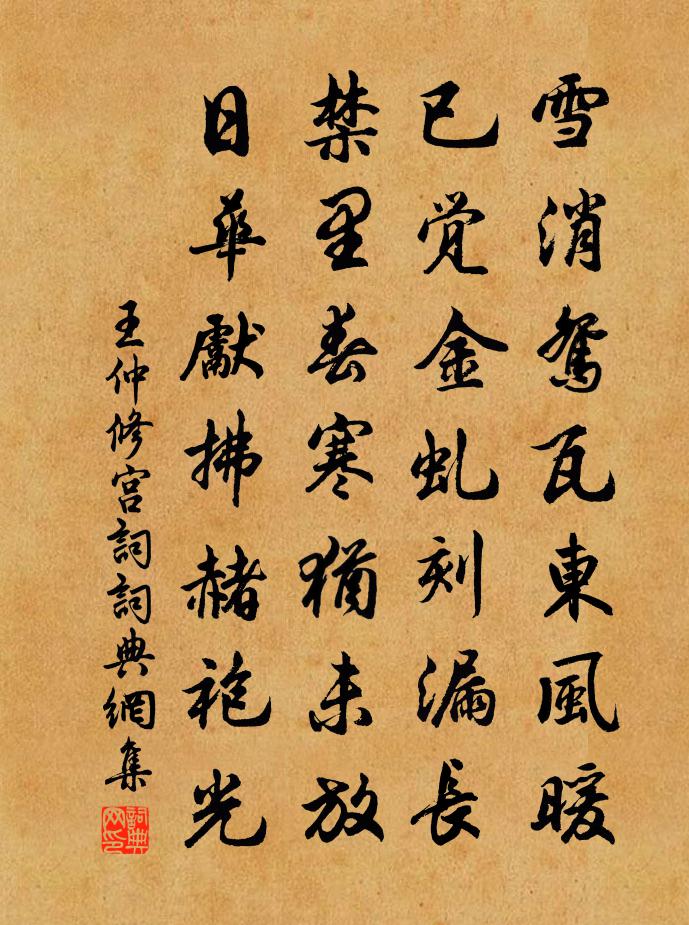 雪消鴛瓦東風暖
已覺金虬刻漏長
禁里春寒猶未放
日華獻拂赭袍光
王仲修宮詞詞典網集
詞典网印